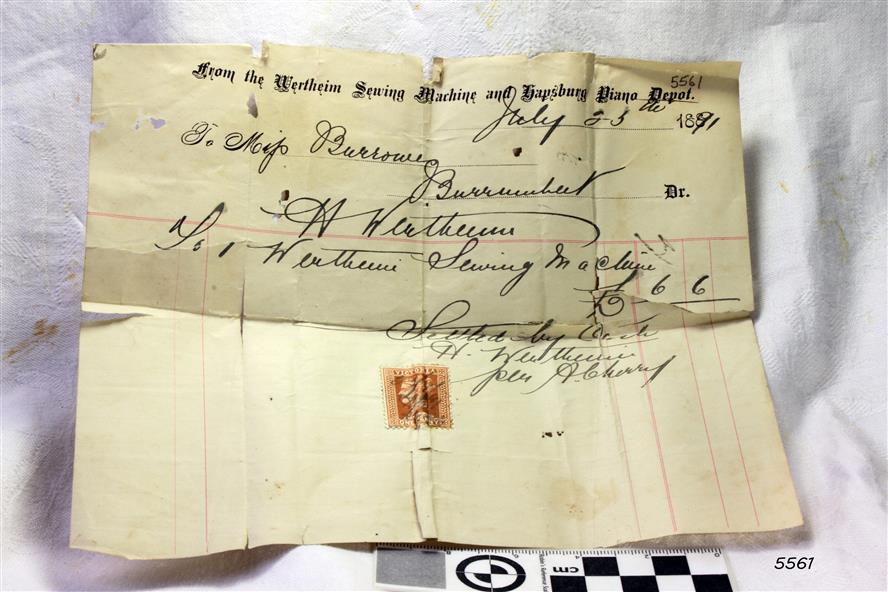 5561
From the Wertheim Sewing Machine and Hapsburg Piano Depot.
July 25 1891
To Miss Burrowes
Burrumbeet Dr.
H Wertheim
To 1 Wertheim Sewing Machine
£ 6 6
Settled by Cash
H. Wertheim
per A. Cherry
VICTORIA
cm
5561